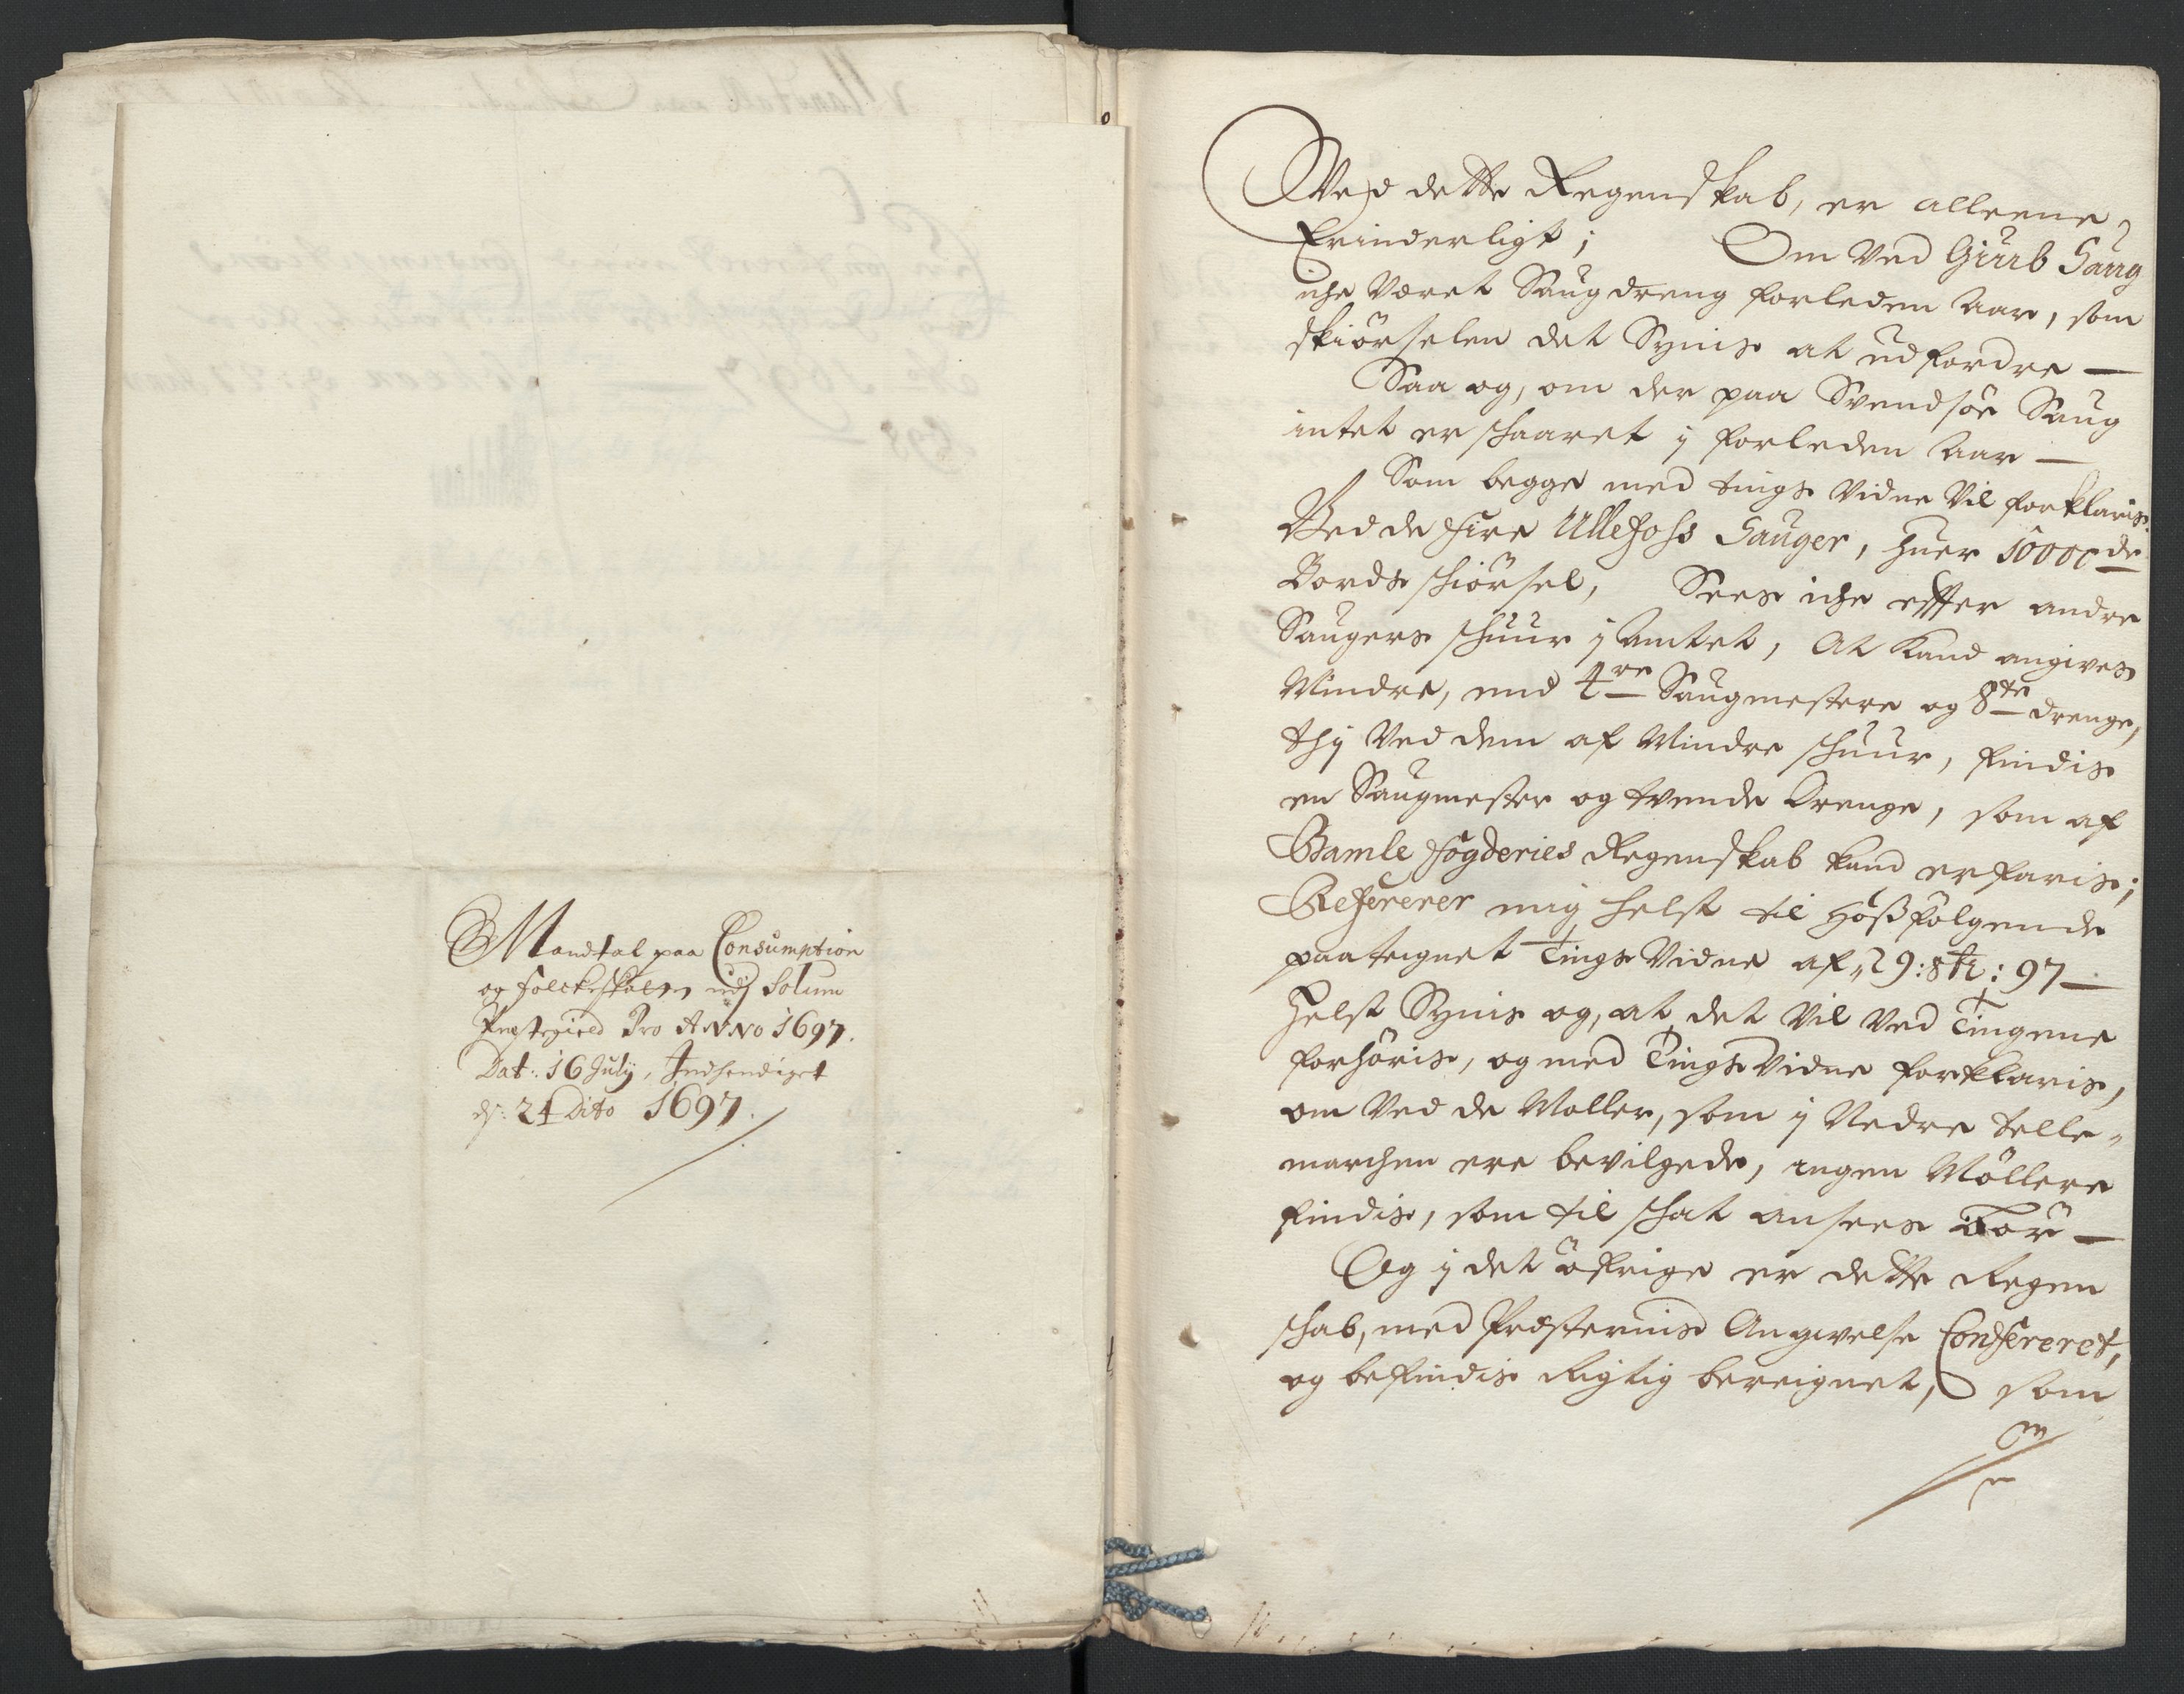 Mandtal paa Consumption
og Folckeskatten udj Solum
Prestegield Pro Anno 1697.
Dat: 16 July, Indhendiget
ds: 24 Dito 1697.
Ved dette Regenskab, er alleene
Erinderligt; Om Ved Giurb Saug
iche Været Saugdreng forleden Aar, som
skiörselen det Synis at udfordre —
Saa og, om der paa Svendsöe Saug
intet er schaaret j forleden Aar —
Som begge med tings Vidne Vil forklaris.
Ved de fire Ullefoss Sauger, huer 10000de
Bords schiörsel, Sees iche effter andre
Saugers schuur j Amtet, At kand angives
Mindre, end 4re Saugmestere og 8te drenge,
thj Ved dem af Mindre schuur, findis
en Saugmester og tvende Drenge, som af
Bamle fogderies Regenskab kand erfaris;
Refererer mig helst til hosfölgende
paategnet Tings Vidne af 29: 8tr: 97 —
Helst Synis og, at det Vil Ved Tingene
forhöris, og med Tings Vidne forklaris,
om Ved de Moller, som j Nedre Telle-
marchen ere bevilgede, ingen Möllere
findis, som til schat ansees for —
Og j det öfrige er dette Regen
schab, med Præsternis Angivelse Confereret,
og befindis Rigtig bereignet, som